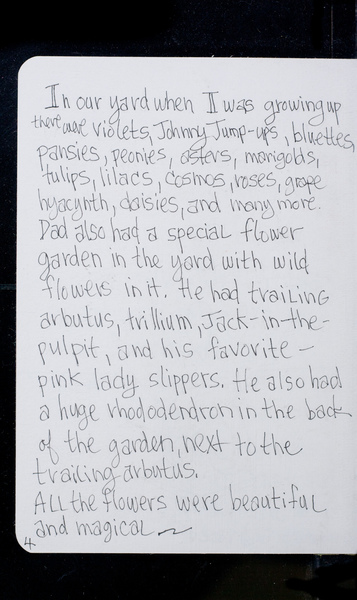 In our yard when I was growing up
there were violets, Johnny Jump-ups, bluettes,
pansies, peonies, asters, marigolds,
tulips, lilacs, cosmos, roses, grape
hyacynth, daisies, and many more.
Dad also had a special flower
garden in the yard with wild
flowers in it. He had trailing
arbutus, trillium, Jack-in-the-
pulpit, and his favorite —
pink lady slippers. He also had
a huge rhododendron in the back
of the garden, next to the
trailing arbutus.
All the flowers were beautiful
and magical
4